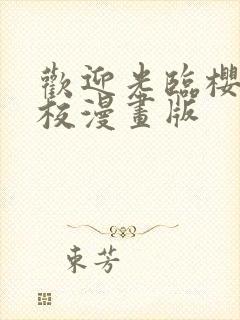 歡迎光臨櫻
校漫畫版
東芳